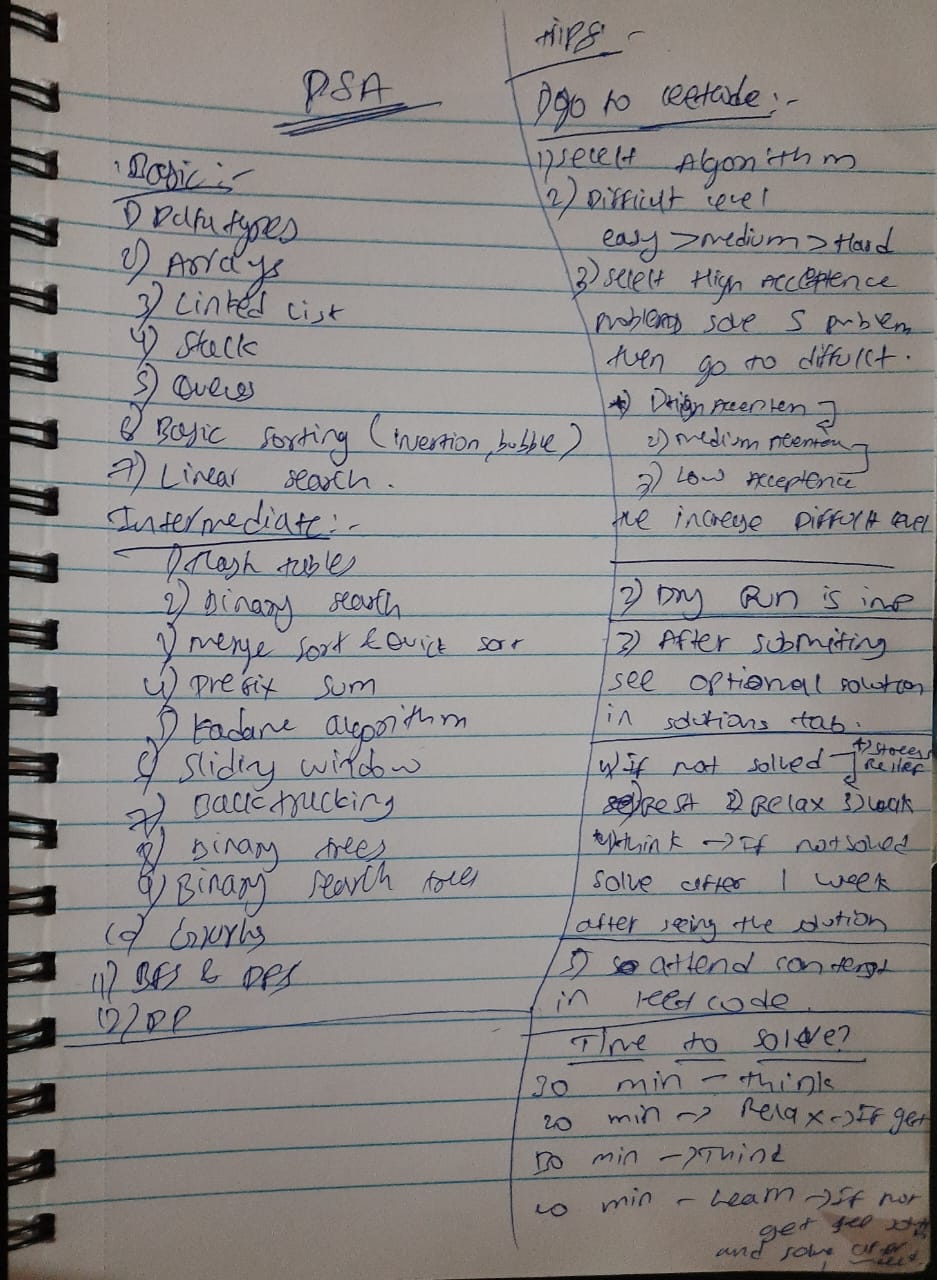 DSA
Basic :-
1) Data types
2) Arrays
3) Linked List
4) Stack
5) Queues
6) Basic sorting (invertion, bubble)
7) Linear search.
Intermediate :-
1) Hash tables
2) Binary search
3) merge sort & Quick sort
4) prefix sum
5) Kadane algorithm
6) Sliding window
7) Backtrucking
8) Binary trees
9) Binary search trees
10) Graphs
11) BFS & DFS
12) DP
tips -
1) go to leetcode :-
1) select Algorithm
2) Difficult level
easy > medium > Hard
3) select High Acceptence
problems solve 5 problem
then go to diffult.
1) High Accepten
2) medium
3) Low Acceptence
the increase Difficult level
2) Dry Run is imp
3) After submiting
see optional solution
in solutions tab.
4) If not solved
Relief
Rest 2) Relax 3) walk
4) think -> if not solved
solve after 1 week
after seeing the solution
5) attend contest
in leetcode.
Time to solve?
30 min - think
20 min -> Relax -> If get
min -> Think
min - Learn -> If not
get see
and solve after